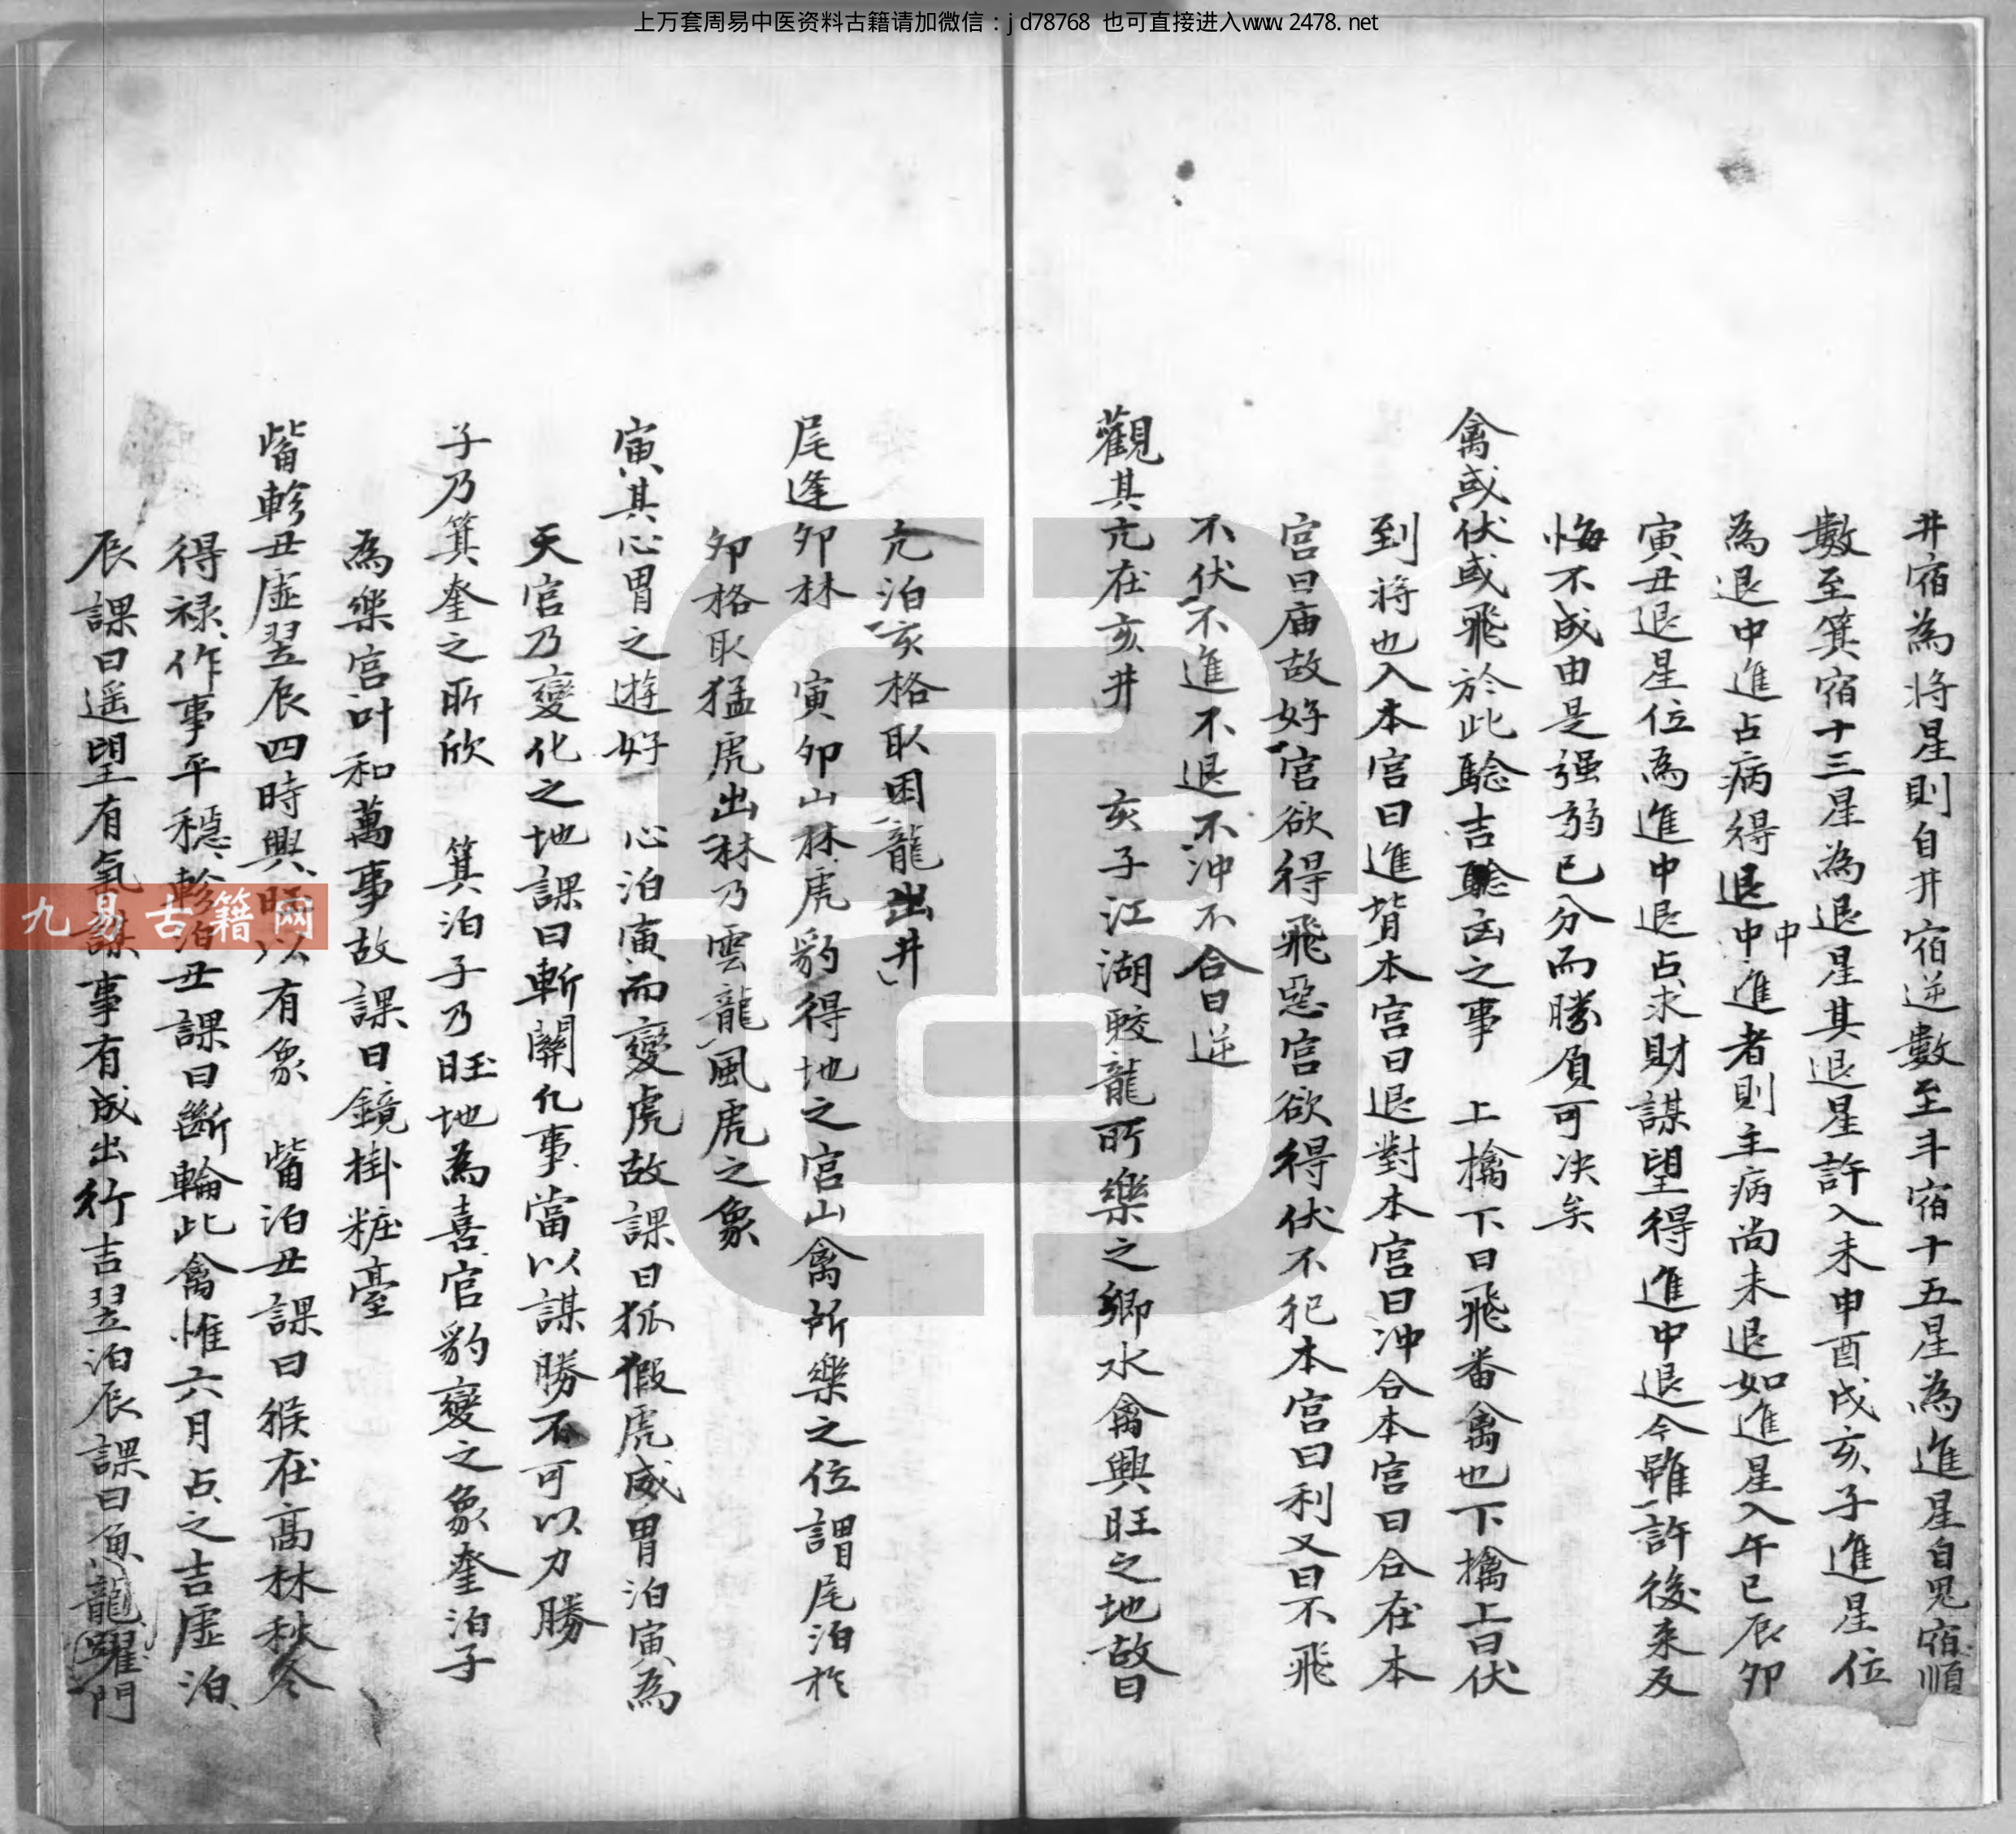 上万套周易中医资料古籍请加微信：jd78768 也可直接进入www.2478.net
井宿為将星則自井宿逆數至斗宿十五星為進星自鬼宿順
數至箕宿十三星為退星其退星許入未申酉戌亥子進星位
為退中進占病得退中進者則主病尚未退如進星入午巳辰卯
中
寅丑退星位為進中退占求財謀望得進中退今雖許後来反
悔不成由是强弱已分而勝負可决矣
禽或伏或飛於此驗吉驗凶之事 上擒下曰飛番禽也下擒上曰伏
到将也入本宫曰進背本宫曰退對本宫曰沖合本宫曰合在本
宫曰庙故好官欲得飛惡宫欲得伏不犯本宫曰利又曰不飛
不伏不進不退不沖不合曰逆
觀其亢在亥井 亥子江湖蛟龍所樂之鄉水禽興旺之地故曰
亢泊亥格取困龍出井
尾逢卯林 寅卯山林虎豹得地之宫山禽所樂之位謂尾泊於
卯格取猛虎出林乃雲龍風虎之象
寅其心胃之遊好 心泊寅而變虎故課曰狐假虎威胃泊寅為
天官乃變化之地課曰斬關凡事當以謀勝不可以力勝
子乃箕奎之所欣 箕泊子乃旺地為喜官豹變之象奎泊子
為樂宫叶和萬事故課曰鏡掛粧臺
觜軫丑虛翌辰四時興旺以有象 觜泊丑課曰猴在高林秋冬
得禄作事平穩軫泊丑課曰斷輪此禽惟六月占之吉虛泊
辰課曰遥望有氣謀事有成出行吉翌泊辰課曰魚龍躍門
九易古籍网